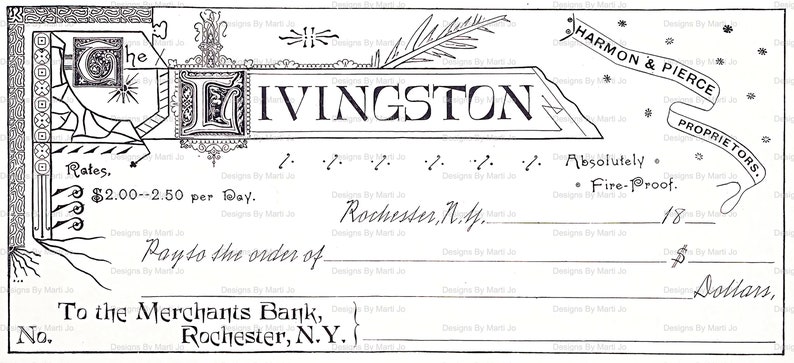 The LIVINGSTON
HARMON & PIERCE
PROPRIETORS.
Rates,
$2.00--2.50 per Day.
Absolutely
Fire-Proof.
Rochester, N.Y. 18
Pay to the order of $
Dollars,
To the Merchants Bank,
No. Rochester, N.Y.
Designs By Marti Jo